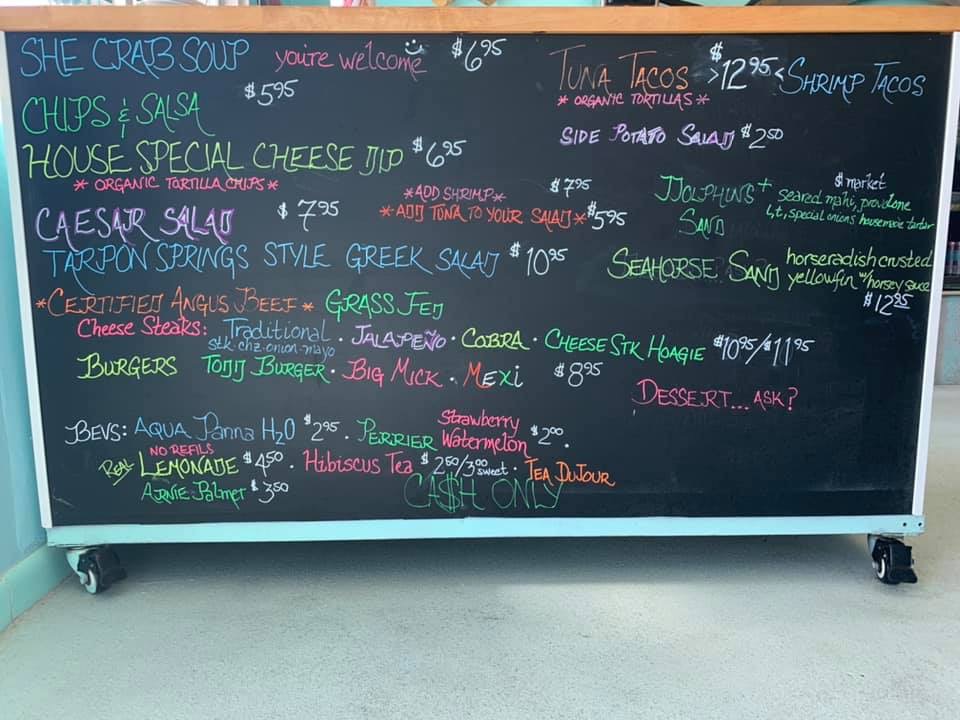 SHE CRAB SOUP you're welcome $6.95
CHIPS & SALSA $5.95
HOUSE SPECIAL CHEESE DIP $6.95
* ORGANIC TORTILLA CHIPS *
*ADD SHRIMP* $7.95
CAESAR SALAD $7.95 *ADD TUNA TO YOUR SALAD* $5.95
TARPON SPRINGS STYLE GREEK SALAD $10.95
*CERTIFIED ANGUS BEEF* GRASS FED
Cheese Steaks: Traditional · JALAPEÑO · COBRA · CHEESE STK HOAGIE $10.95/$11.95
stk-chz-onion-mayo
BURGERS TODD BURGER · BIG MICK · MEXI $8.95
TUNA TACOS >$12.95< SHRIMP TACOS
* ORGANIC TORTILLAS *
SIDE POTATO SALAD $2.50
DOLPHINS+ SAND $ market
seared mahi, provolone
l,t, special onions housemade tartar
SEAHORSE SAND horseradish crusted
yellowfin w/horsey sauce
$12.95
DESSERT... ASK?
BEVS: AQUA Panna H2O $2.95 · PERRIER Strawberry Watermelon $2.00 ·
NO REFILS
REAL LEMONADE $4.50 · Hibiscus Tea $2.50/3.00 sweet · TEA DUJOUR
ARNIE Palmer $3.50
CA$H ONLY